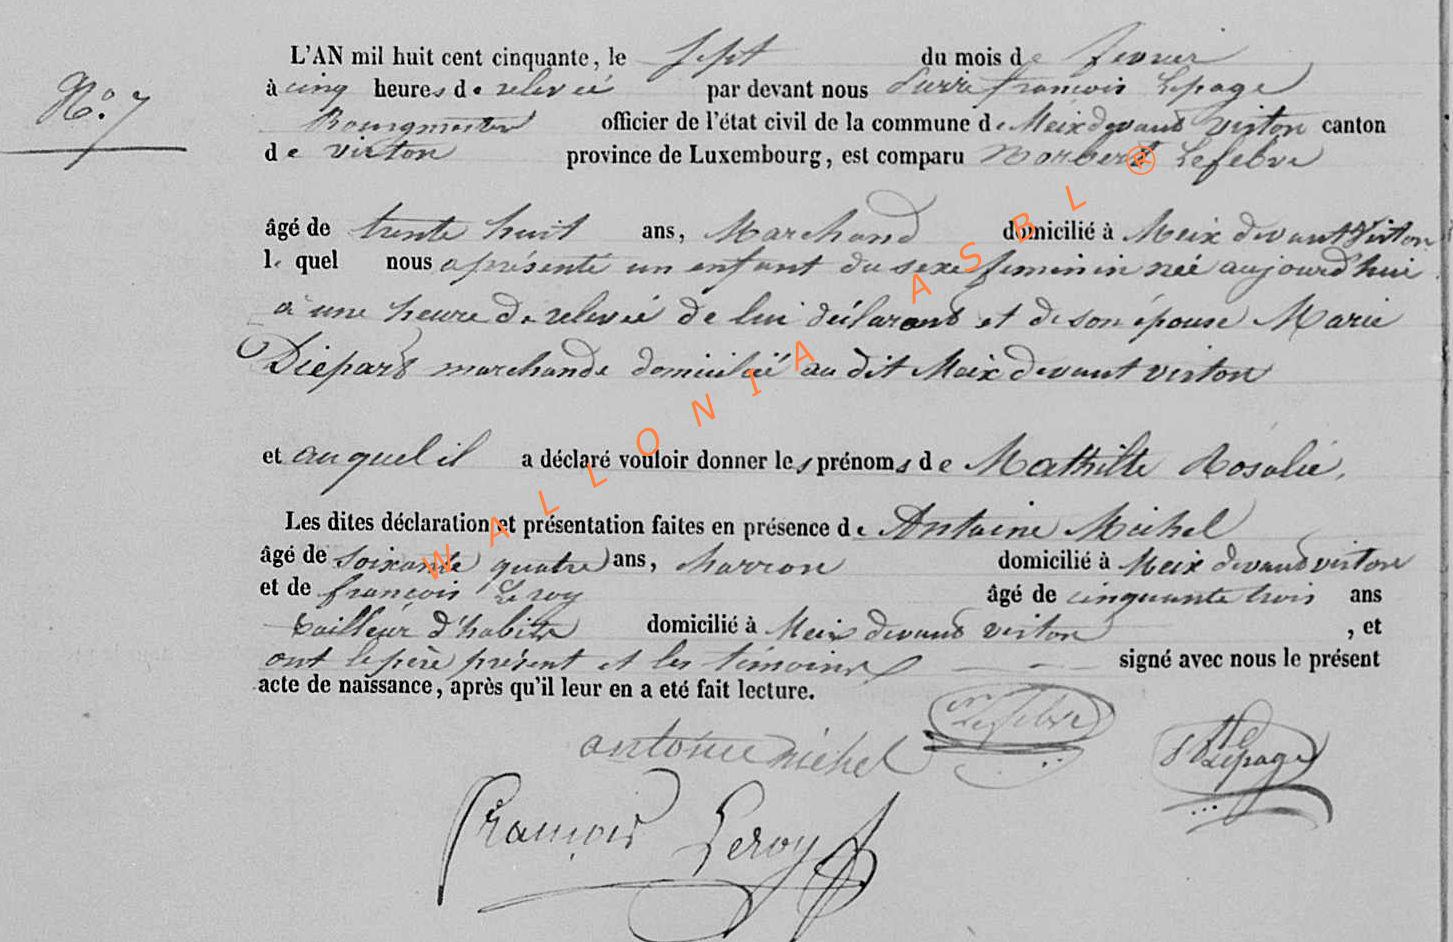 L'AN mil huit cent cinquante, le sept du mois de fevrier
N.° 7
à cinq heures de relevée par devant nous Pierre françois Lepage
Bourgmestre officier de l'état civil de la commune de Meix devant Virton canton
de virton province de Luxembourg, est comparu Norbert Lefebvre
âgé de trente huit ans, Marchand domicilié à Meix devant Virton
lequel nous a présenté un enfant du sexe feminin née aujourd'hui
à une heure de relevée de lui déclarant et de son épouse Marie
Diepart marchande domiciliée au dit Meix devant virton
et auquel il a déclaré vouloir donner les prénoms de Mathilde Rosalie,
Les dites déclaration et présentation faites en présence de Antoine Michel
âgé de soixante quatre ans, charron domicilié à Meix devant virton
et de françois Leroy âgé de cinquante trois ans
tailleur d'habits domicilié à Meix devant virton , et
ont le père présent et les témoins signé avec nous le présent
acte de naissance, après qu'il leur en a eté fait lecture.
Lefebvre
antoine michel
Lepage
François Leroy
WALLONIA ASBL ®